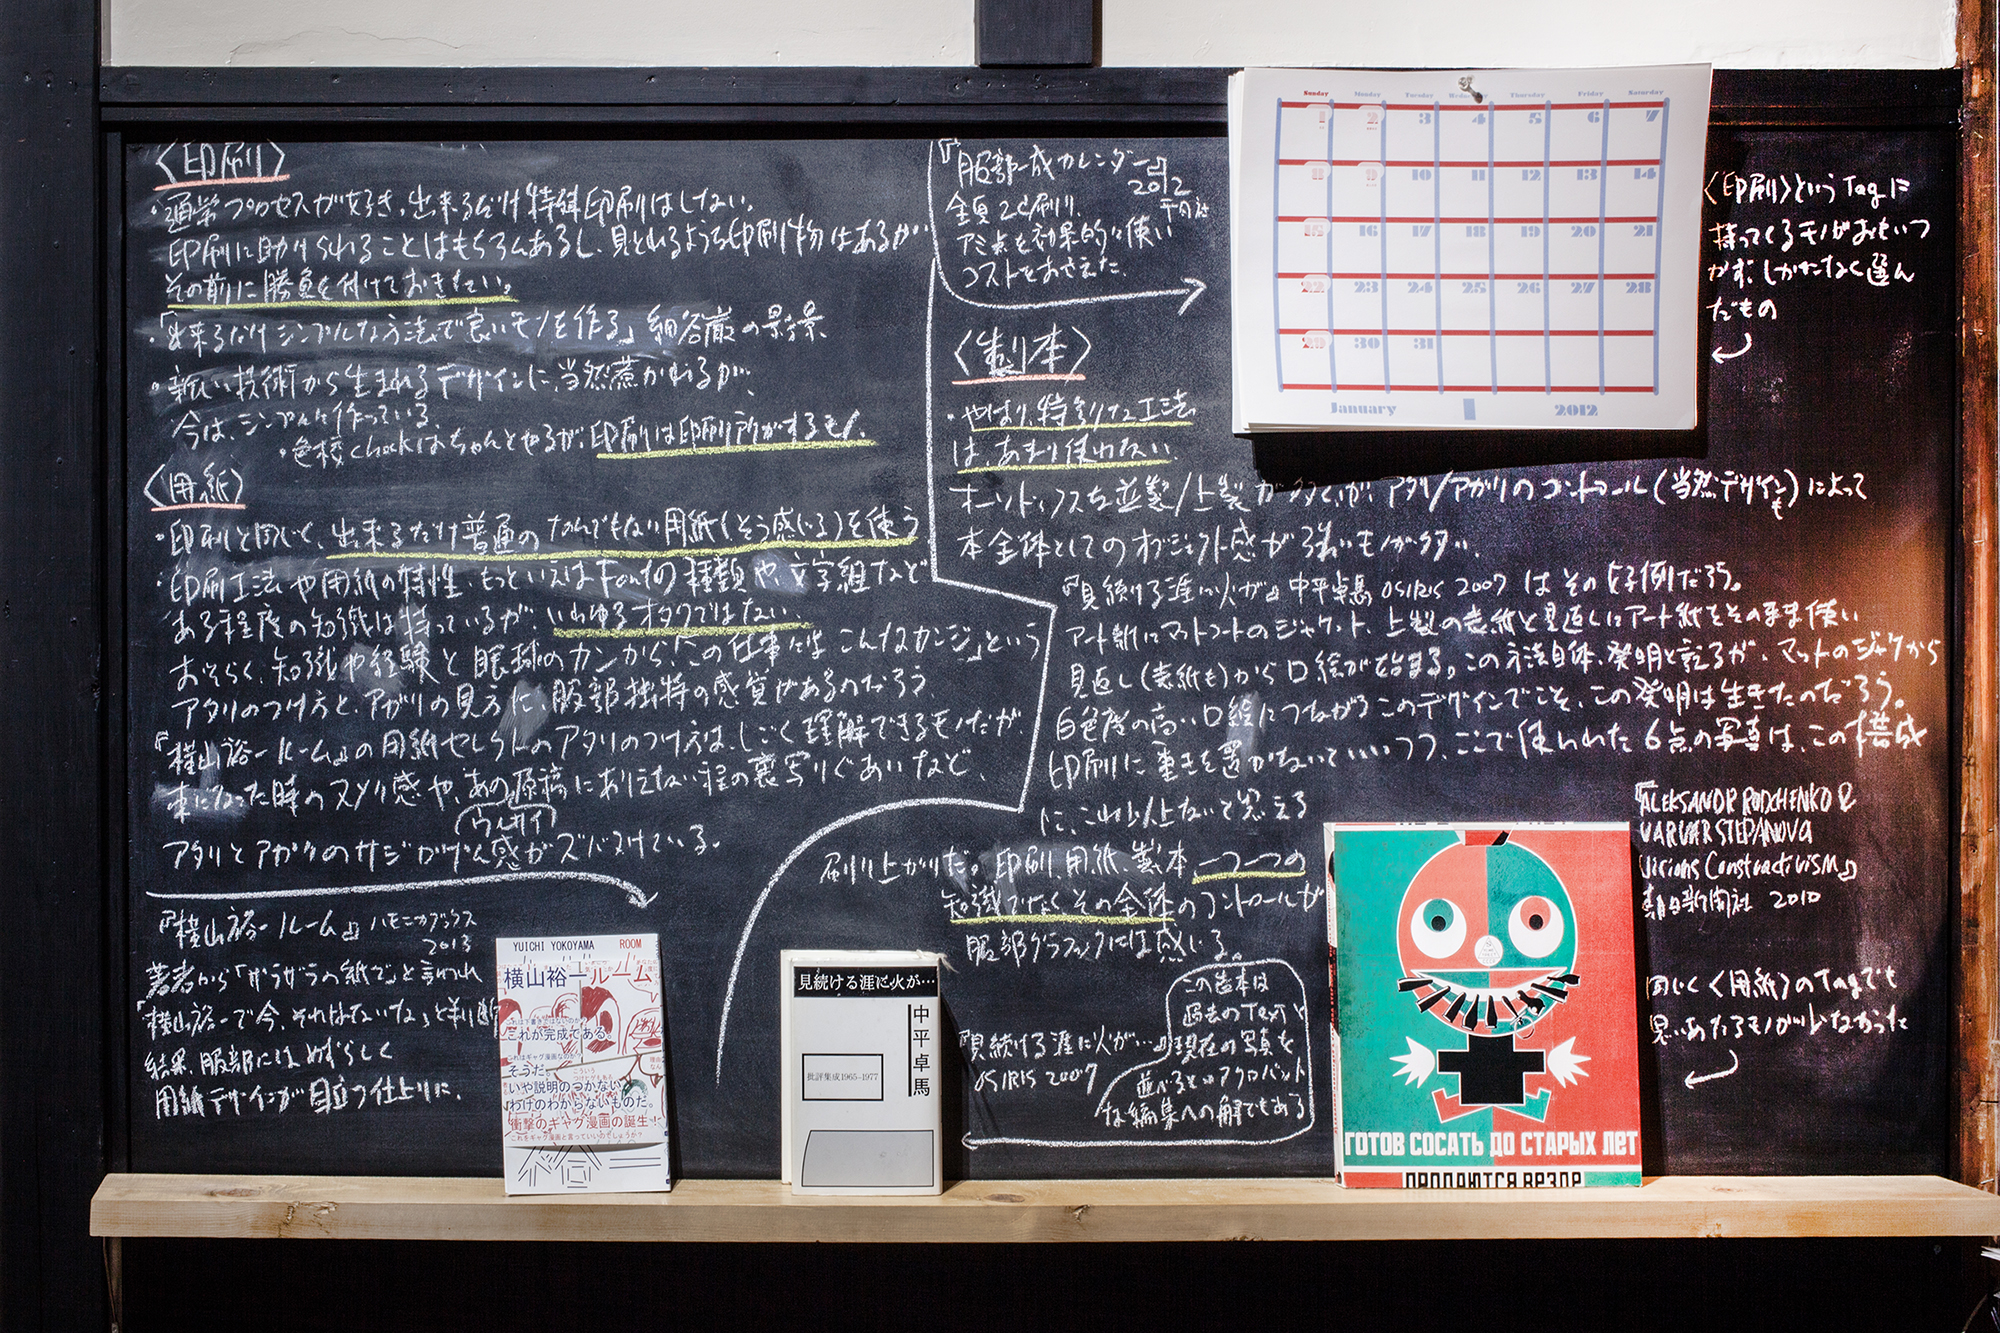 〈印刷〉
・通常プロセスが好き。出来るだけ特殊印刷はしない。
印刷に助けられることはもちろんあるし、見とれるような印刷物はあるが、
その前に勝負を付けておきたい。
・「出来るだけシンプルな方法で良いモノを作る」細谷巖の景景、
・新しい技術から生まれるデザインに、当然惹かれるが、
今は、シンプルに作っている。
・色校checkはちゃんとやるが、印刷は印刷所がするモノ。
〈用紙〉
・印刷と同じく、出来るだけ普通のなんでもない用紙(そう感じる)を使う
・印刷工法や用紙の特性、もっといえばFontの種類や、文字組など
ある程度の知識は持っているが、いわゆるオタクではない。
おそらく、知識や経験と眼球のカンから、「この仕事にはこんなカンジ」という
アタリのつけ方と、アガリの見方に、服部独特の感覚があるのだろう。
『横山裕一ルーム』の用紙セレクトのアタリのつけ方は、しごく理解できるモノだが、
本になった時のヌメリ感や、あの原稿にありえない程の裏写りぐあいなど、
アタリとアガリのサジかげん感がズバヌけている。
『横山裕一ルーム』ハモニカブックス
2013
著者から「ザラザラの紙で」と言われ
「横山裕一で今、それはないな」と判断
結果、服部にはめずらしく
用紙デザインが目立つ仕上りに。
『服部一成カレンダー』
2012
全頁2c刷り、
アミ点を効果的に使い
コストをおさえた。
〈製本〉
・やはり、特別な工法
は、あまり使わない。
オーソドックスな並製/上製が多いが、アタリ/アガリのコントロール(当然デザインも)によって
本全体としてのオブジェクト感が強いモノが多い。
『見続ける涯に火が』中平卓馬 OSIRIS 2007 はその好例だろう。
アート紙にマットコートのジャケット、上製の表紙と見返しにアート紙をそのまま使い
見返し(表紙も)から口絵が始まる。この方法自体、発明と言えるが、マットのジャケから
白色度の高い口絵につながるこのデザインでこそ、この発明は生きたのだろう。
印刷に重きを置かないでいいつつ、ここで使われた6点の写真は、この構成
に、これ以上ないと思える
刷り上がりだ。印刷、用紙、製本 一つ一つの
知識でなく、その全体のコントロールが
服部グラフィックには感じる。
『見続ける涯に火が…』
OSIRIS 2007
この造本は
過去のTextと
現在の写真を
並べるというアクロバット
な編集への解でもある
〈印刷〉というTagに
持ってくるモノがおもいつ
かず、しかたなく選ん
だもの
『ALEKSANDR RODCHENKO &
VARVAR STEPANOVA
Visions Constructivism』
朝日新聞社 2010
同じく〈用紙〉のTagでも
思いあたるモノが少なかった
Sunday Monday Tuesday Wednesday Thursday Friday Saturday
1 2 3 4 5 6 7
8 9 10 11 12 13 14
15 16 17 18 19 20 21
22 23 24 25 26 27 28
29 30 31
January 2012
YUICHI YOKOYAMA ROOM
横山裕一ルーム
これは下書きではないのか?
これが完成である。
これはギャグ漫画なのか?
そうだ。
いや説明のつかない
わけのわからないものだ。
衝撃のギャグ漫画の誕生!
これをギャグ漫画と言っていいのでしょうか?
見続ける涯に火が…
中平卓馬
批評集成1965-1977
ГОТОВ СОСАТЬ ДО СТАРЫХ ЛЕТ
ПРОДАЮТСЯ ВЕЗДЕ